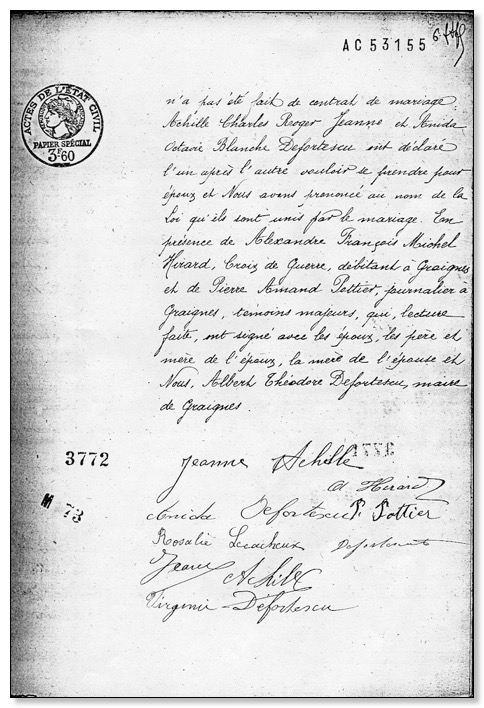 AC 53155
ACTES DE L'ÉTAT CIVIL
PAPIER SPÉCIAL
3F60
n'a pas été fait de contrat de mariage.
Achille Charles Roger Jeanne et Anida
Octavie Blanche Defortescu ont déclaré
l'un après l'autre vouloir se prendre pour
époux et Nous avons prononcé au nom de la
Loi qu'ils sont unis par le mariage. En
présence de Alexandre François Michel
Hirard, Croix de Guerre, débitant à Graignes
et de Pierre Amand Pottier, journalier à
Graignes, témoins majeurs, qui, lecture
faite, ont signé avec les époux, les père et
mère de l'époux, la mère de l'épouse et
Nous, Albert Théodore Defortescu, maire
de Graignes.
3772
1773
Jeanne Achille
A Hirard
M 73
Anida Defortescu P. Pottier
Rosalie Lecacheux Defortescu
Jeanne Achille
Virginie Defortescu